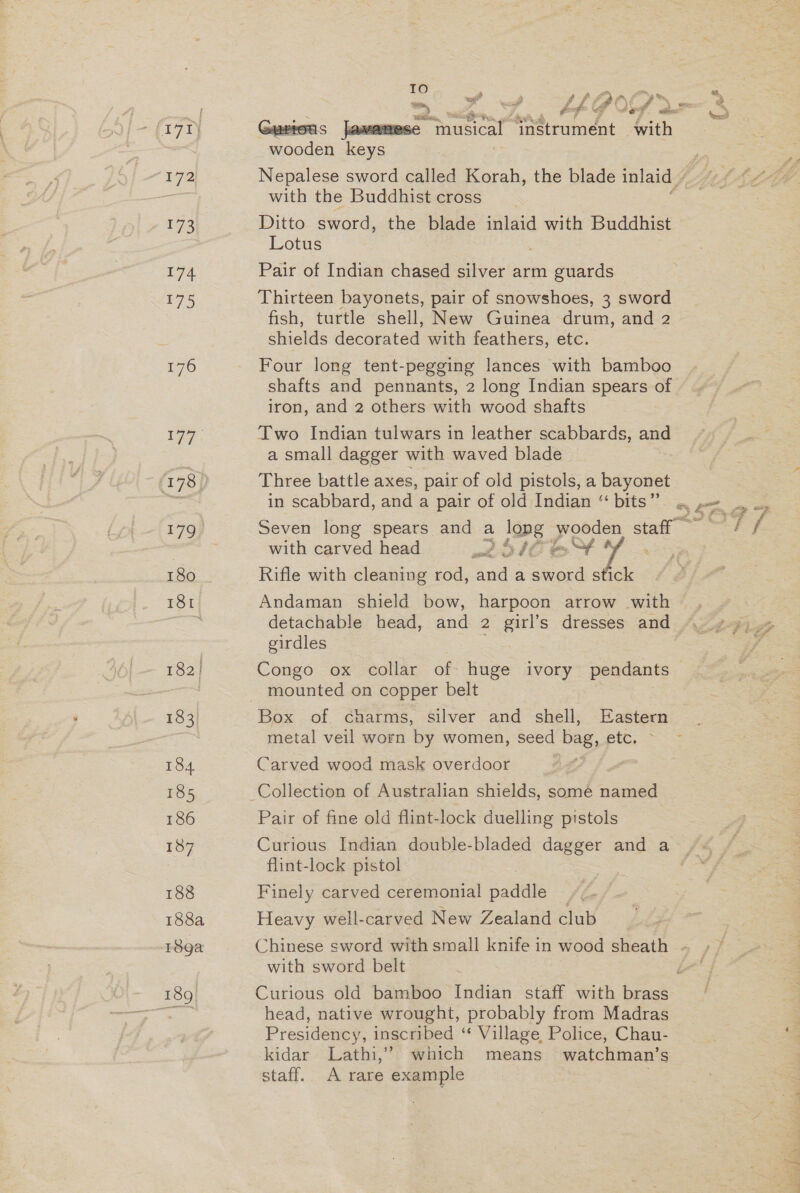 10
171 Curious Javanese musical instrument with
wooden keys
172 Nepalese sword called Korah, the blade inlaid
with the Buddhist cross
173 Ditto sword, the blade inlaid with Buddhist
Lotus
174 Pair of Indian chased silver arm guards
175 Thirteen bayonets, pair of snowshoes, 3 sword
fish, turtle shell, New Guinea drum, and 2
shields decorated with feathers, etc.
176 Four long tent-pegging lances with bamboo
shafts and pennants, 2 long Indian spears of
iron, and 2 others with wood shafts
177 Two Indian tulwars in leather scabbards, and
a small dagger with waved blade
178 Three battle axes, pair of old pistols, a bayonet
in scabbard, and a pair of old Indian “bits”
179 Seven long spears and a long wooden staff
with carved head
180 Rifle with cleaning rod, and a sword stick
181 Andaman shield bow, harpoon arrow with
detachable head, and 2 girl's dresses and
girdles
182 Congo ox collar of huge ivory pendants
mounted on copper belt
183 Box of charms, silver and shell, Eastern
metal veil worn by women, seed bag, etc.
184 Carved wood mask overdoor
185 Collection of Australian shields, some named
186 Pair of fine old flint-lock duelling pistols
187 Curious Indian double-bladed dagger and a
flint-lock pistol
188 Finely carved ceremonial paddle
188a Heavy well-carved New Zealand club
189a Chinese sword with small knife in wood sheath
with sword belt
189 Curious old bamboo Indian staff with brass
head, native wrought, probably from Madras
Presidency, inscribed “Village Police, Chau-
kidar Lathi,” which means watchman's
staff. A rare example